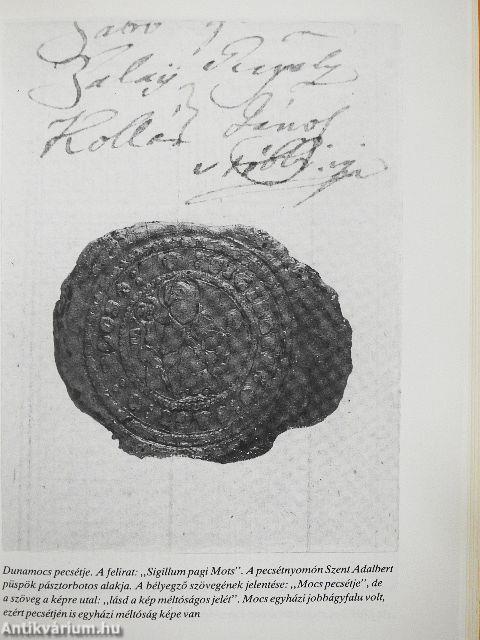 Zalay
Kollár János
Dunamocs pecsétje. A felirat: „Sigillum pagi Mots”. A pecsétnyomón Szent Adalbert
püspök pásztorbotos alakja. A bélyegző szövegének jelentése: „Mocs pecsétje”, de
a szöveg a képre utal: „lásd a kép méltóságos jelét”. Mocs egyházi jobbágyfalu volt,
ezért pecsétjén is egyházi méltóság képe van
Antikvárium.hu